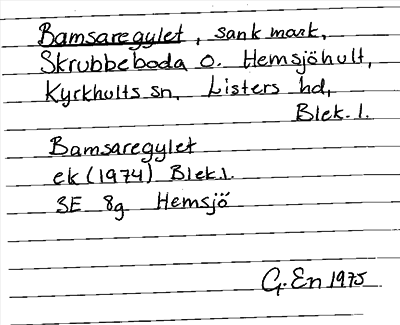 Bamsaregylet, sank mark,
Skrubbeboda o. Hemsjöhult,
Kyrkhults sn, Listers hd,
Blek. l.
Bamsaregylet
ek (1974) Blek. l.
3E 8g Hemsjö
G. En 1975